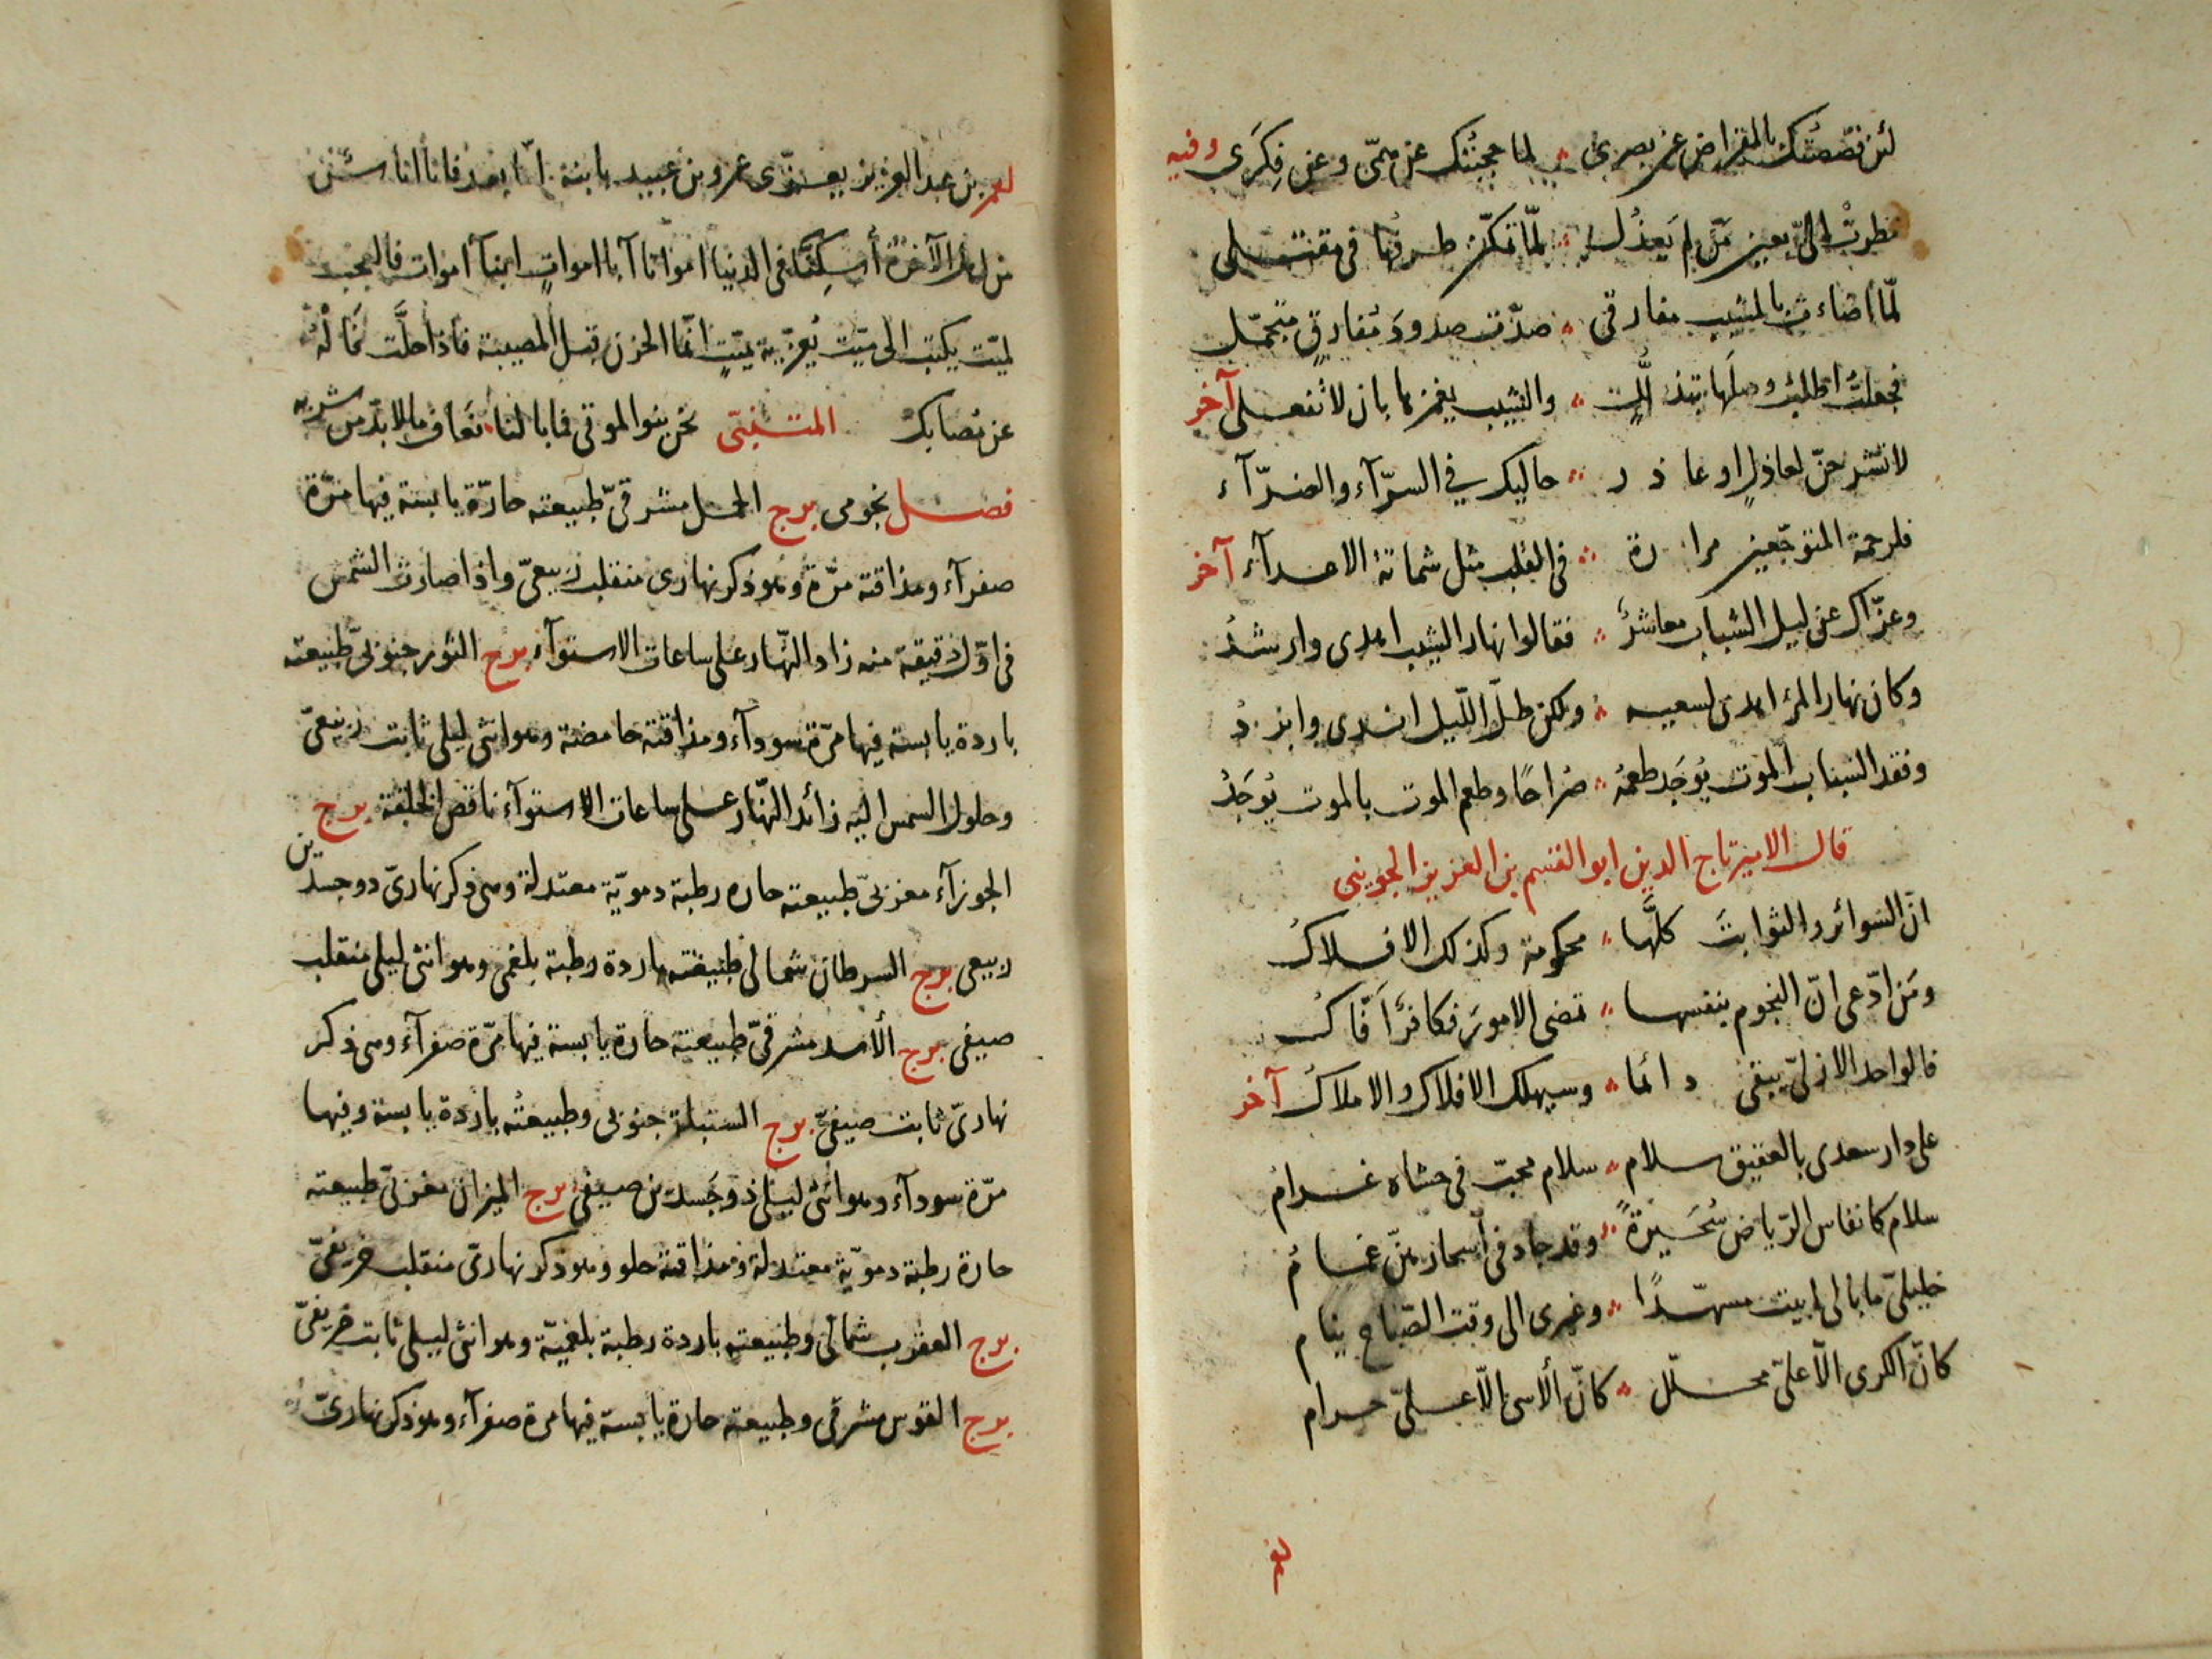 لئن قصصتك بالمقراض عن بصرى ۞ لما حجبتك عن همّى وعن فِكَرى وفيه
نظرتْ الىّ بعين مَن لم يَعذُل ۞ لمّا تمكّن طرفها فى مقتلى
لمّا اضاءت بالمشيب مفارقى ۞ صدّت صدودَ مُفارقٍ متجمّل
فجعلتُ اطلبُ وصلَها بتذلّلٍ ۞ والشيب يغمزها بان لا تفعلى آخر
لا تشرحنّ لعاذلٍ او عاذر ۞ حاليك في السرّآء والضرّآء
فلرحمة المتوجّعين مرارة ۞ فى القلب مثل شماتة الاعدآء آخر
وعزّاك عن ليل الشباب معاشرٌ ۞ فقالوا نهار الشيب اهدى وارشدُ
وكان نهار المرء اهدى لسعيه ۞ ولكن ظلّ اللّيل اندى وابردُ
وفقد الشباب الموت يُوجَد طعمُه ۞ صُراحًا وطعم الموت بالموت يُوجَدُ
قال الامير تاج الدين ابو القسم بن العزيز الجوينى
انّ السّوائر والثوابتَ كلَّها ۞ محكومة وكذلك الافلاكُ
ومَن ادّعى انّ النجوم بنفسها ۞ تمضى الامورَ فكافرٌ اَفّاكُ
فالواحد الازلىّ يبقى دائما ۞ وسيهلك الافلاك والاملاكُ آخر
على دار سعدى بالعقيق سلام ۞ سلام محبّ فى حشاه غرامُ
سلام كانفاس الرّياض سُحَيرةً ۞ وقد جاد فى أسحارهنّ غمامُ
خليلىّ ما بالى ابيت مسهّدًا ۞ وغيرى الى وقت الصّباح ينام
كانّ الكرى الّا علىّ محلّل ۞ كانّ الأسى الّا علىّ حرام
لعمر بن عبد العزيز يعزّى عمرو بن عبيد بابنة امّا بعد فانا اناس
من اهل الآخرة أُسكِنّا فى الدنيا امواتا آبا امواتٍ ابنآ اموات فالعجب
لميّت يكتب الى ميّت يُعزّيه بميّتٍ انّما الحزن قبل المصيبة فاذا حلّت فَالْهُ
عن مصابك المتنبّى نحن بنو الموتى فما بالنا ۞ نعاف ما لا بدّ من شربه
فصل نجومى برج الحمل مشرقىّ طبيعته حارّة يابسة فيها مرّة
صفرآء ومذاقته مرّة وهو ذكر نهارى منقلب ربيعىّ واذا صارت الشمس
فى اوّل دقيقة منه زاد النّهار على ساعات الاستوآء برج الثور جنوبىّ طبيعته
باردة يابسة فيها مرّة سودآء ومذاقته حامضة وهو انثى ليلى ثابت ربيعىّ
وحلول الشمس اليه زائد النّهار على ساعات الاستوآء ناقص الخلقة برج
الجوزآء مغربىّ طبيعته حاره رطبة دمويّة معتدلة وهى ذكر نهارىّ ذو جسدين
ربيعى برج السرطان شمالى طبيعته باردة رطبة بلغمى وهو انثى ليلى منقلب
صيفى برج الأسد مشرقىّ طبيعته حارة يابسة فيها مرّة صفرآء وهى ذكر
نهارىّ ثابت صيفىّ برج السنبلة جنوبى وطبيعتُه باردة يابسة وفيها
مرّة سودآء وهو انثى ليلى ذو جَسدين صيفى برج الميزان مغربىّ طبيعته
حارة رطبة دمويّة معتدلة ومذاقته حلو وهو ذكر نهارىّ منقلب خريفىّ
برج العقرب شمالى وطبيعته باردة رطبة بلغميّة وهو انثى ليلى ثابت خريفىّ
برج القوس مشرقى وطبيعته حارة يابسة فيها مرة صفرآء وهو ذكر نهارىّ